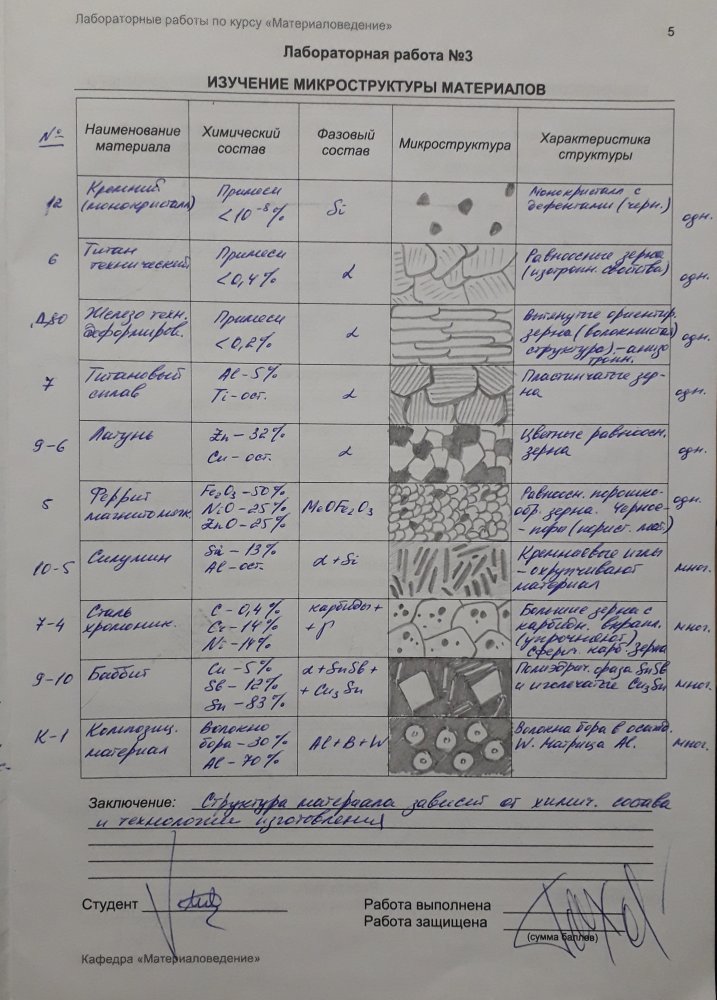 Лабораторные работы по курсу «Материаловедение»
5
Лабораторная работа №3
ИЗУЧЕНИЕ МИКРОСТРУКТУРЫ МАТЕРИАЛОВ
№
Наименование материала
Химический состав
Фазовый состав
Микроструктура
Характеристика структуры
12
Кремний
(монокристалл)
Примеси
<10⁻⁸%
Si
Монокристалл с
дефектами (черн.)
одн.
6
Титан
технический
Примеси
<0,4%
α
Равноосные зерна
(изотропн. свойства)
одн.
Д80
Железо техн.
деформиров.
Примеси
<0,2%
α
Вытянутые ориентир.
зерна (волокнистая
структура) - анизо
тропн.
одн.
7
Титановый
сплав
Al - 5%
Ti - ост.
α
Пластинчатые зер-
на
одн.
9-6
Латунь
Zn - 32%
Cu - ост.
α
Цветные равноосн.
зерна
одн.
5
Феррит
магнитомягк.
Fe₂O₃ - 50%
NiO - 25%
ZnO - 25%
MeOFe₂O₃
Равноосн. порошко-
обр. зерна. Черное
- поры (порист. мат.)
одн.
10-5
Силумин
Si - 13%
Al - ост.
α + Si
Кремниевые иглы
- охрупчивают
материал
мног.
7-4
Сталь
хромоник.
C - 0,4%
Cr - 14%
Ni - 14%
карбиды +
+ γ
Большие зерна с
карбидн. вкрапл.
(упрочняют)
Сферич. карб. зерна
мног.
9-10
Баббит
Cu - 5%
Sb - 12%
Sn - 83%
α + SnSb +
+ Cu₃Sn
Полиэдрич. фаза SnSb
и игольчатые Cu₃Sn
мног.
К-1
Композиц.
материал
Волокно
бора - 30%
Al - 70%
Al + B + W
Волокна бора в
W. Матрица Al.
мног.
Заключение: Структура материала зависит от химич. состава
и технологии изготовления
Студент
Работа выполнена
Работа защищена
(сумма баллов)
Кафедра «Материаловедение»